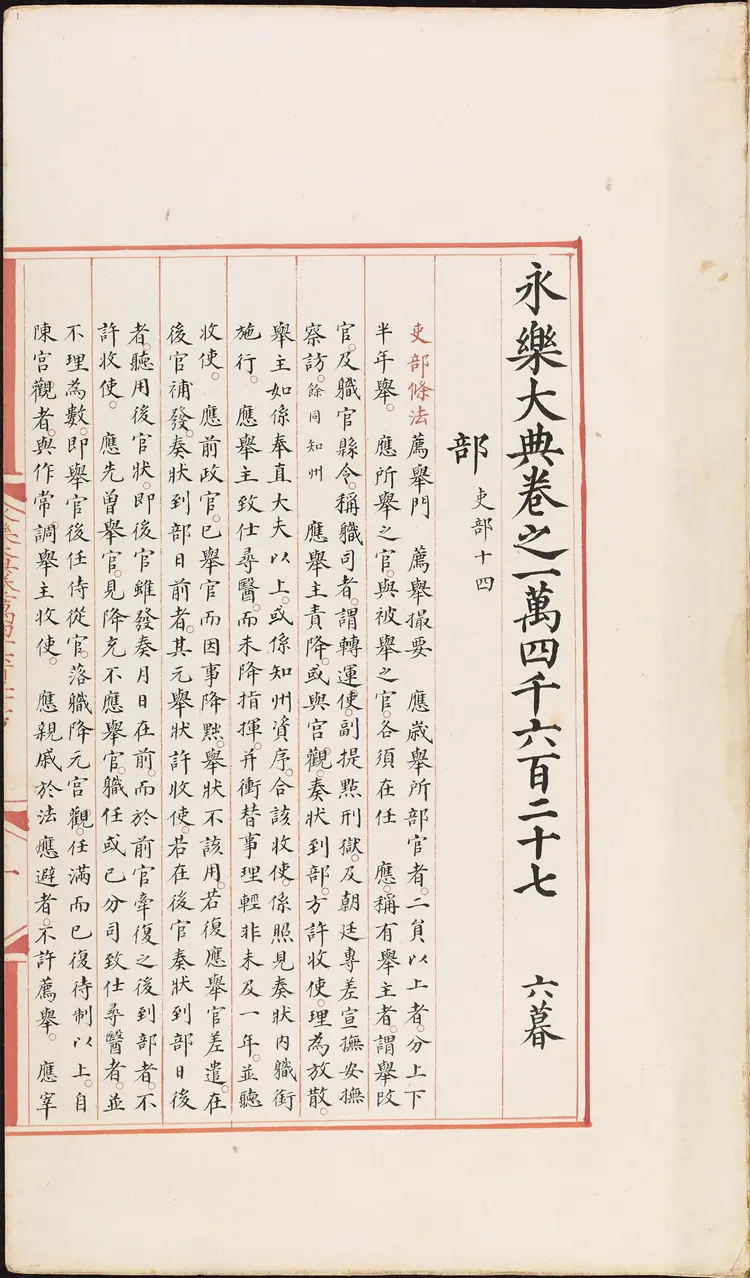 永樂大典卷之一萬四千六百二十七 六暮
部 吏部十四
吏部條法薦舉門 薦舉撮要 應歲舉所部官者。二員以上者。分上下
半年舉。 應所舉之官。與被舉之官。各須在任 應稱有舉主者。謂舉改
官。及職官縣令。稱職司者。謂轉運使。副提點刑獄。及朝廷專差宣撫安撫
察訪。餘同知州 應舉主責降。或與宮觀。奏狀到部。方許收使。理為放散。
舉主如係奉直大夫以上。或係知州資序。合該收使。係照見奏狀內職銜
施行。 應舉主致仕尋醫。而未降指揮。并衝替事理輕非未及一年。並聽
收使。 應前政官。已舉官而因事降黜。舉狀不該用。若復應舉官差遣。在
後官補發。奏狀到部日前者。其元舉狀許收使。若在後官奏狀到部日後
者。聽用後官狀。即後官雖發奏月日在前。而於前官牽復之後到部者。不
許收使。 應先曾舉官。見降充不應舉官。職任或已分司致仕尋醫者。並
不理為數。即舉官後任待從官。落職降元宮觀。任滿而已復待制以上。自
陳宮觀者。與作常調舉主收使。 應親戚於法應避者。不許薦舉。 應宰